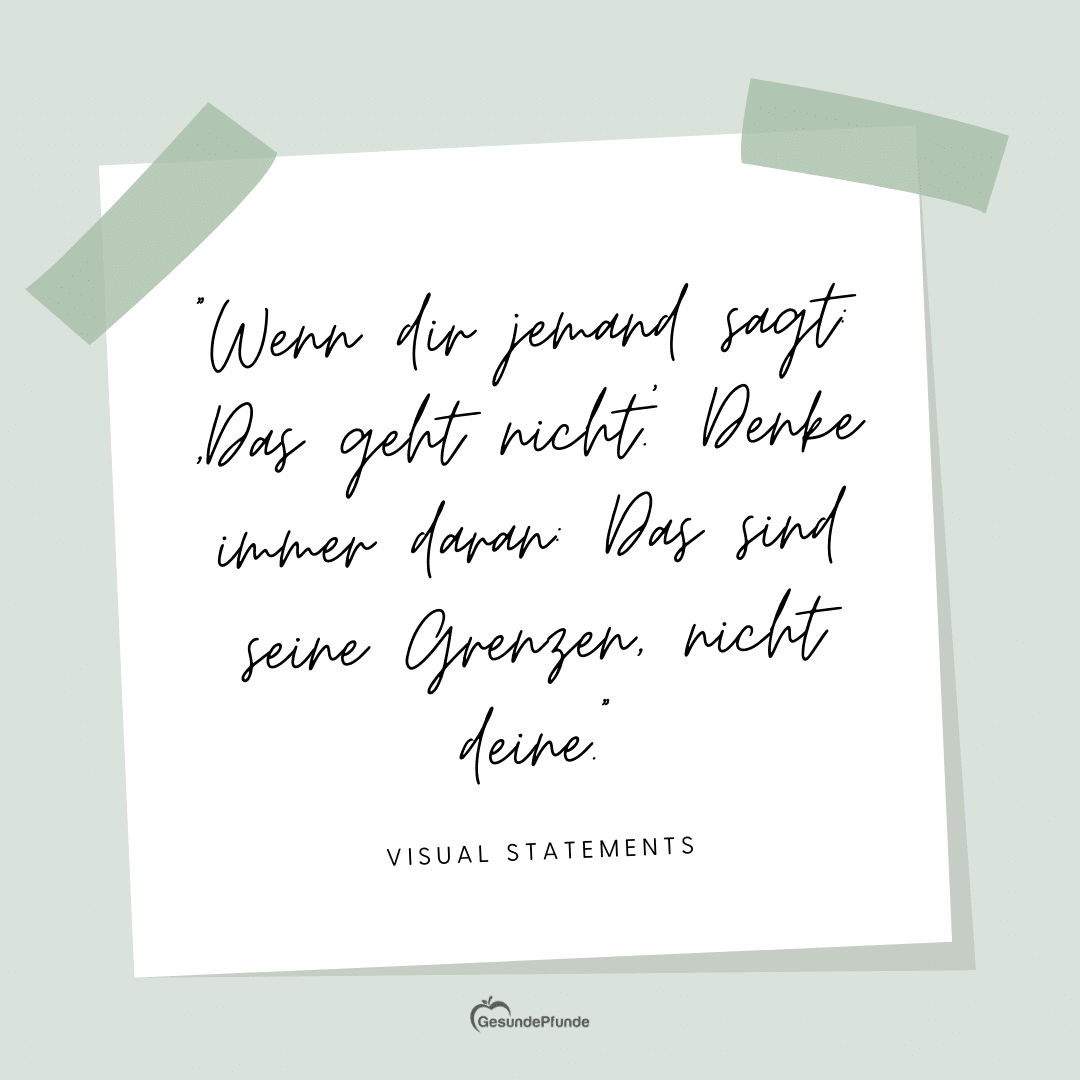 "Wenn dir jemand sagt:
‚Das geht nicht.' Denke
immer daran: Das sind
seine Grenzen, nicht
deine."
VISUAL STATEMENTS
GesundePfunde